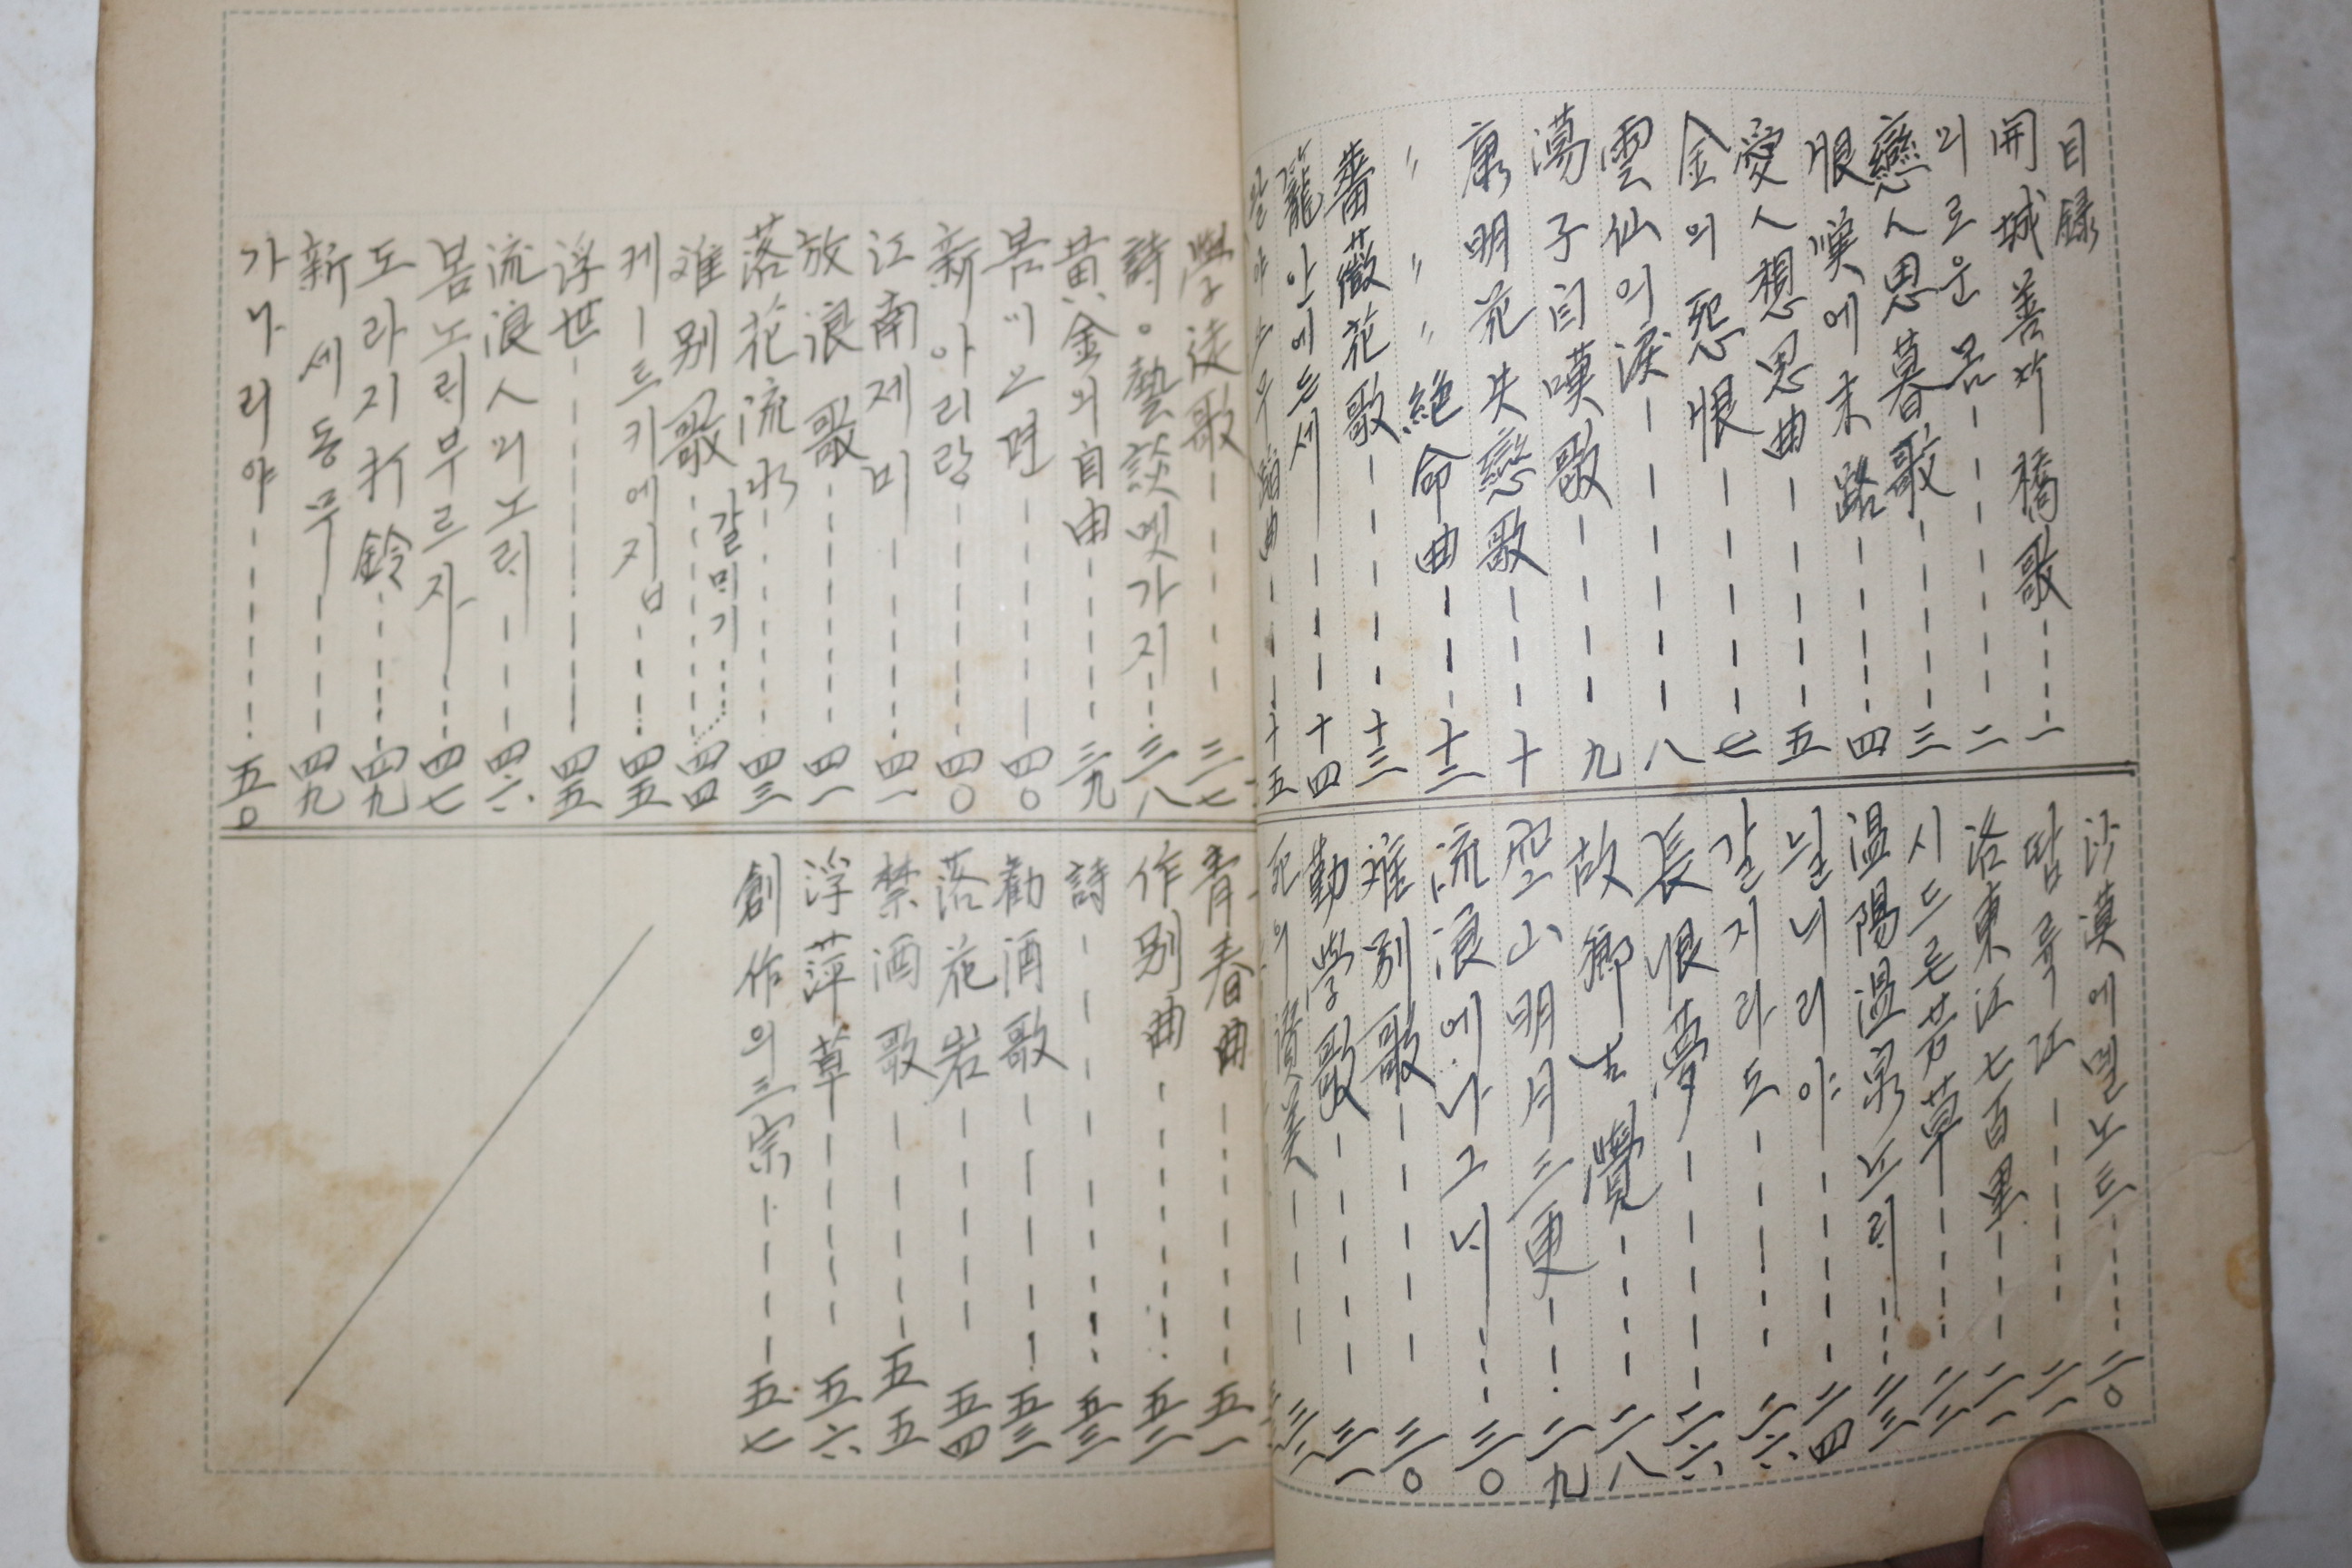 目録
開城善竹橋歌 一
의로운 몸 二
戀人思慕歌 三
恨嘆에末路 四
愛人想思曲 五
金의 怨恨 七
雲仙의 淚 八
蕩子自嘆歌 九
康明花失戀歌 十
〃〃〃絶命曲 十二
薔薇花歌 十三
籠안에든세 十四
十五
沙漠에멜노듸 二〇
땀루江 二一
洛東江七百里 二一
시드른芳草 二二
溫陽溫泉노리 二三
늴니리야 二四
갈지라도 二六
長恨夢 二六
故鄕 覺 二八
空山明月三更 二九
流浪에나그니 三〇
難別歌 三〇
勤學歌 三一
死의讚美
學徒歌 三七
詩。藝談멧가지 三八
黃金의自由 三九
봄이오면 四〇
新아리랑 四〇
江南제비 四一
放浪歌 四一
落花流水 四三
갈미기
难别歌 四四
케ー르키에지ᄆ 四五
浮世 四五
流浪人의노릐 四六
봄노릐부르자 四七
도라지打鈴 四九
新세동무 四九
가나리야 五〇
靑春曲 五一
作別曲 五二
詩 五三
勸酒歌 五三
落花岩 五四
禁酒歌 五五
浮萍草 五六
創作의三宗 五七